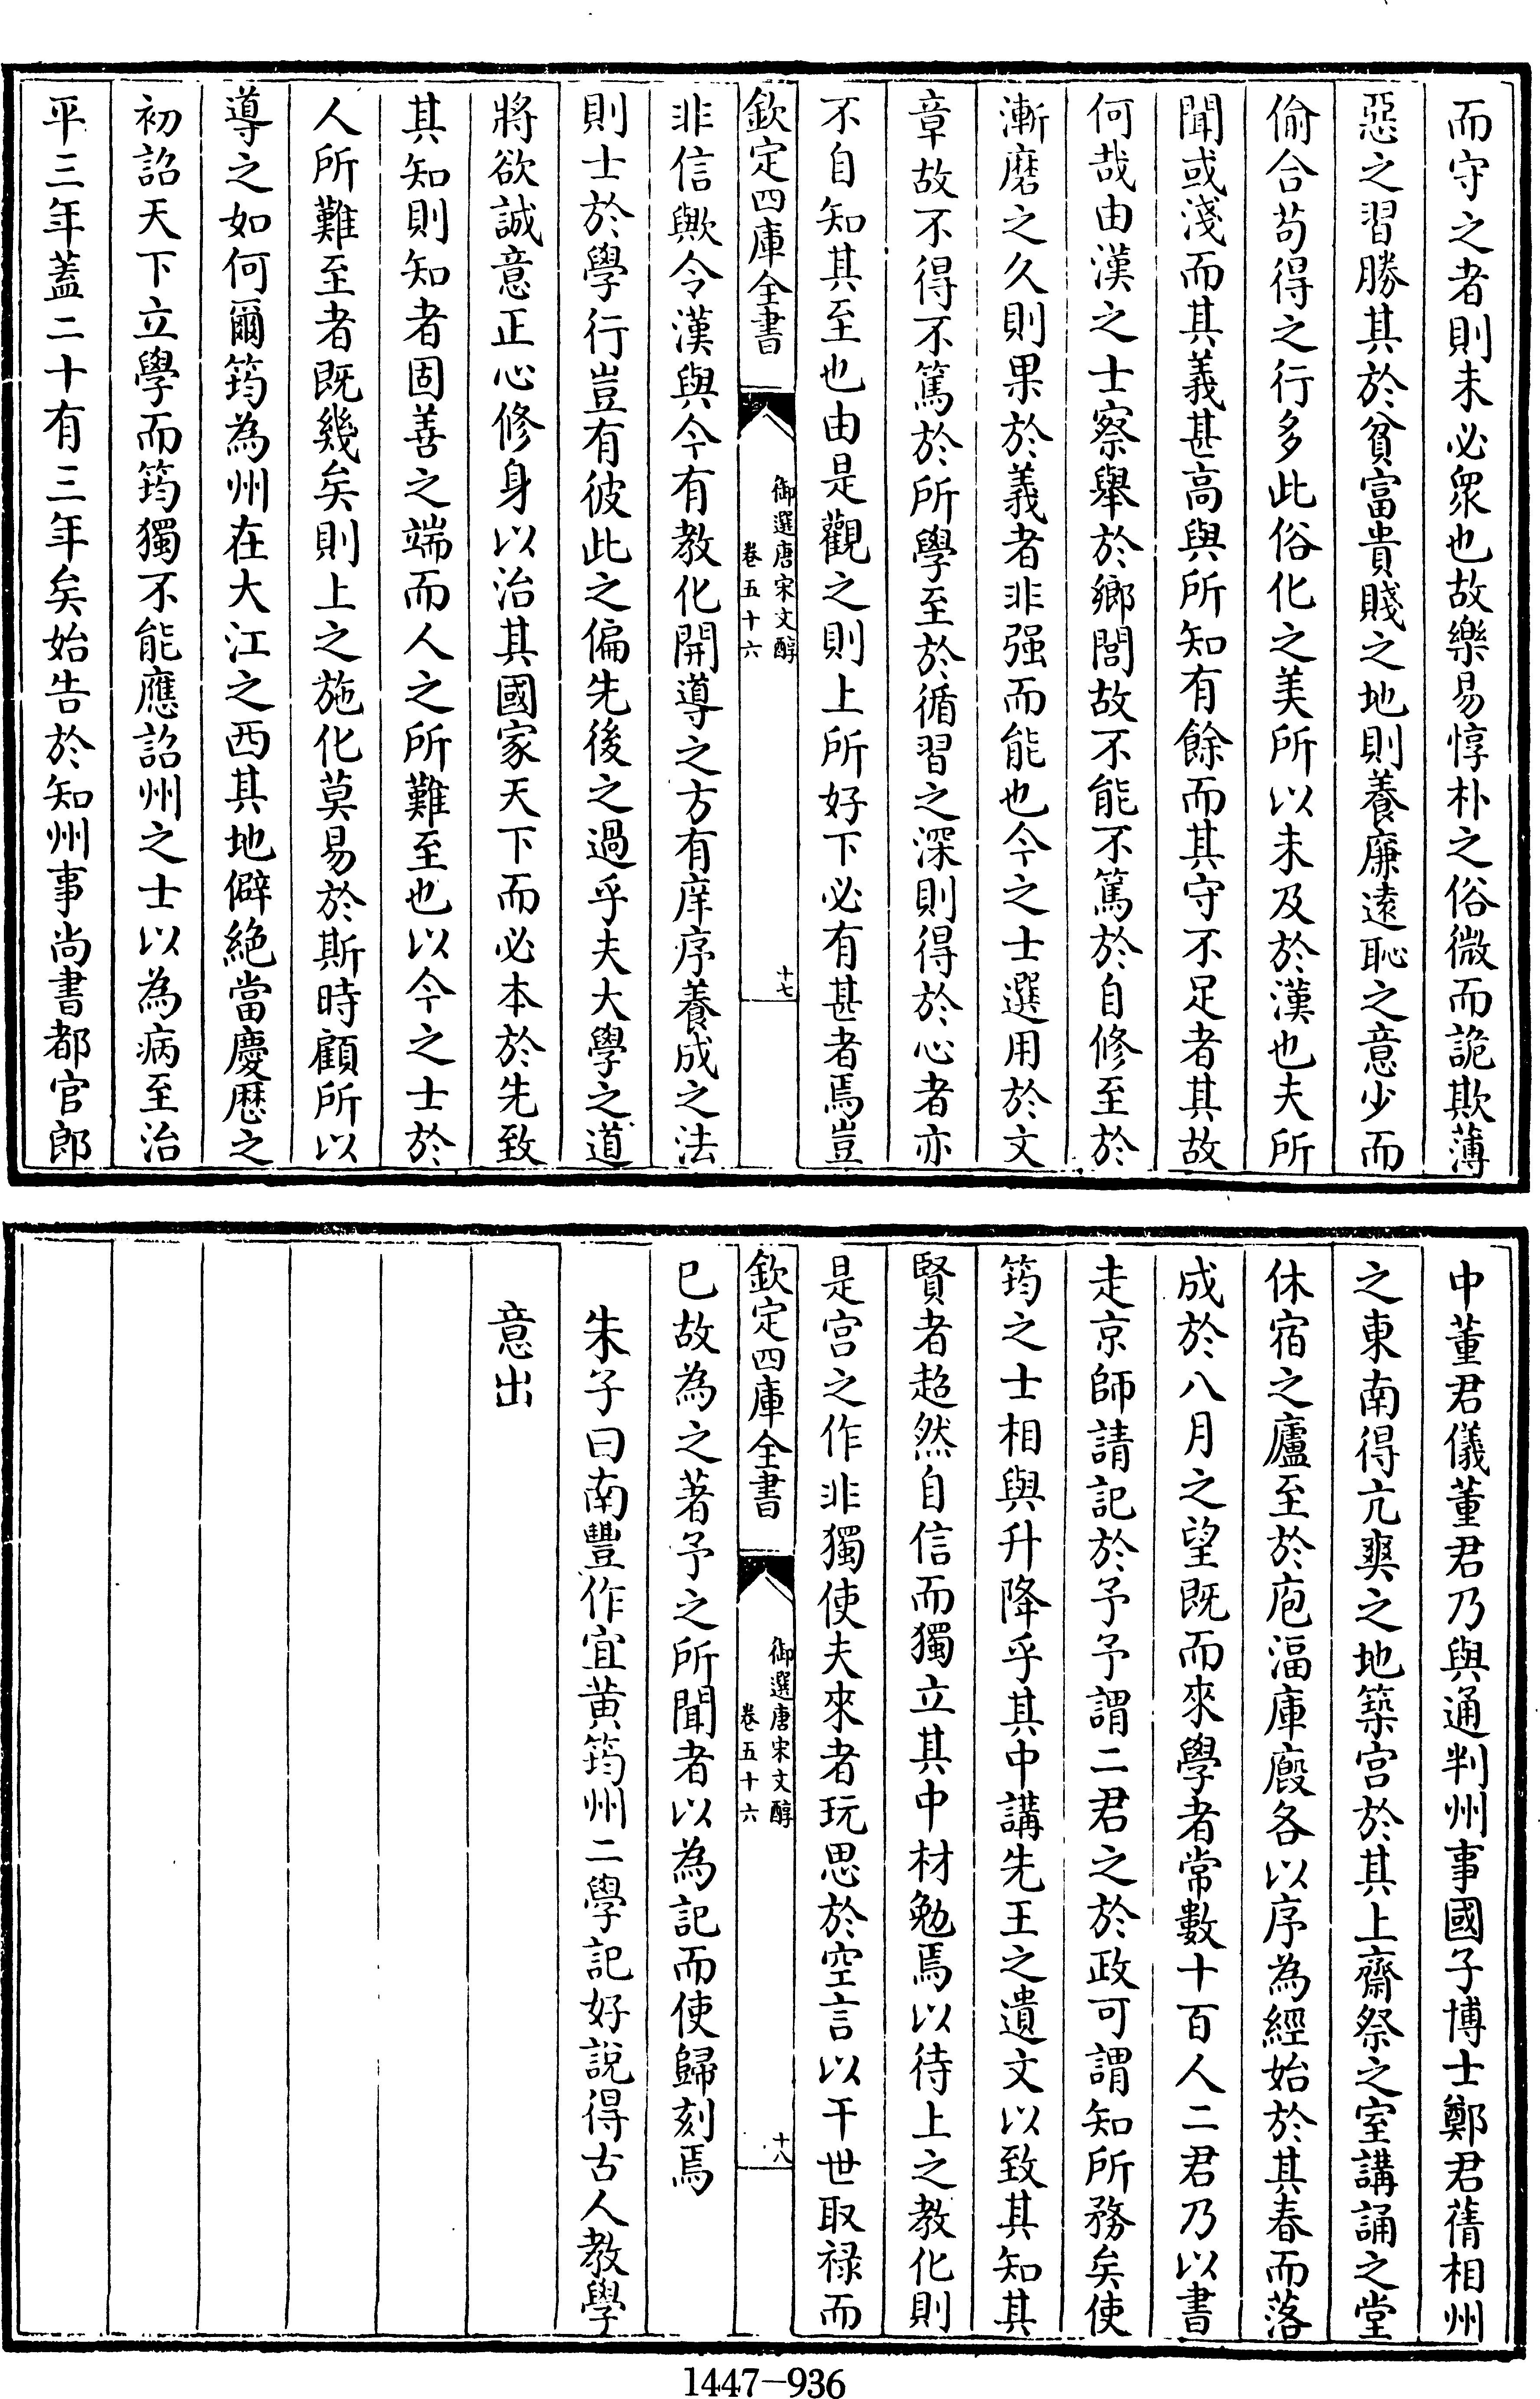 而守之者則未必眾也故樂易惇朴之俗微而詭欺薄
惡之習勝其於貧富貴賤之地則養廉遠恥之意少而
偷合苟得之行多此俗化之美所以未及於漢也夫所
聞或淺而其義甚高與所知有餘而其守不足者其故
何哉由漢之士察舉於鄉閭故不能不篤於自修至於
漸磨之久則果於義者非强而能也今之士選用於文
章故不得不篤於所學至於循習之深則得於心者亦
不自知其至也由是觀之則上所好下必有甚者焉豈
欽定四庫全書
御選唐宋文醇
卷五十六
十七
非信歟令漢與今有教化開導之方有庠序養成之法
則士於學行豈有彼此之偏先後之過乎夫大學之道
將欲誠意正心修身以治其國家天下而必本於先致
其知則知者固善之端而人之所難至也以今之士於
人所難至者既幾矣則上之施化莫易於斯時顧所以
導之如何爾筠為州在大江之西其地僻絶當慶厯之
初詔天下立學而筠獨不能應詔州之士以為病至治
平三年蓋二十有三年矣始告於知州事尚書都官郎
中董君儀董君乃與通判州事國子博士鄭君蒨相州
之東南得亢爽之地築宫於其上齋祭之室講誦之堂
休宿之廬至於庖湢庫廏各以序為經始於其春而落
成於八月之望既而來學者常數十百人二君乃以書
走京師請記於予予謂二君之於政可謂知所務矣使
筠之士相與升降乎其中講先王之遺文以致其知其
賢者超然自信而獨立其中材勉焉以待上之教化則
是宫之作非獨使夫來者玩思於空言以干世取禄而
欽定四庫全書
御選唐宋文醇
卷五十六
十八
已故為之著予之所聞者以為記而使歸刻焉
朱子曰南豐作宜黄筠州二學記好說得古人教學
意出
1447-936